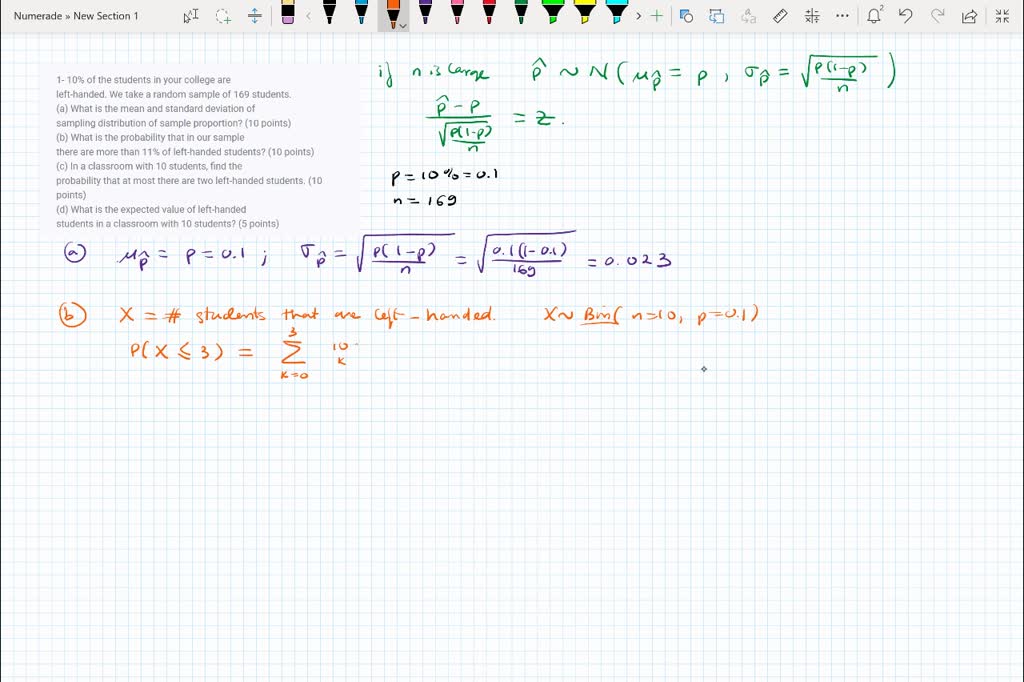 Numerade » New Section 1
2
1- 10% of the students in your college are
left-handed. We take a random sample of 169 students.
(a) What is the mean and standard deviation of
sampling distribution of sample proportion? (10 points)
(b) What is the probability that in our sample
there are more than 11% of left-handed students? (10 points)
(c) In a classroom with 10 students, find the
probability that at most there are two left-handed students. (10
points)
(d) What is the expected value of left-handed
students in a classroom with 10 students? (5 points)
if n is large p̂ ~ N( μp̂ = p , σp̂ = √(p(1-p)/n) )
(p̂ - p)/√(p(1-p)/n) = z.
p = 10% = 0.1
n = 169
(a) μp̂ = p = 0.1 ; σp̂ = √(p(1-p)/n) = √(0.1(1-0.1)/169) = 0.023
(b) X = # students that are left-handed. X ~ Bin( n=10, p=0.1)
P(X ≤ 3) = ∑ k=0 3 10 k